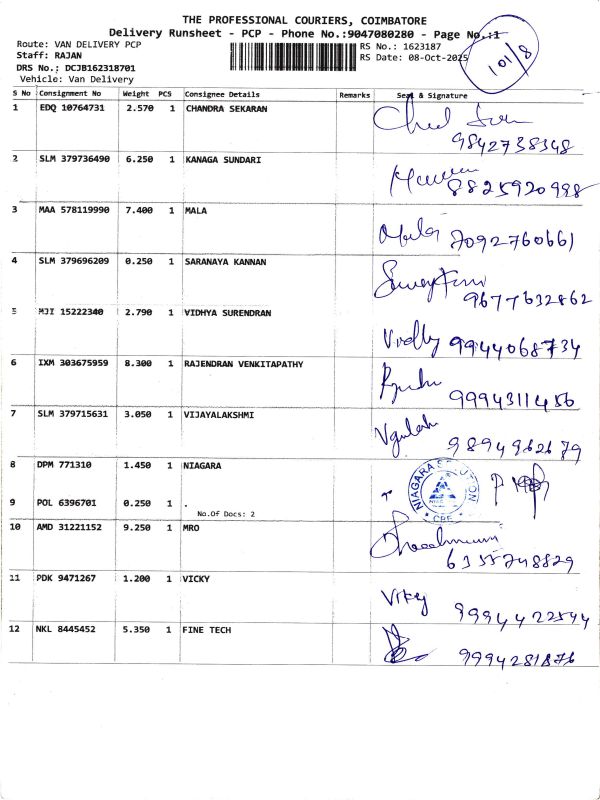 THE PROFESSIONAL COURIERS, COIMBATORE
Delivery Runsheet - PCP - Phone No.:9047080280 - Page No.:1
Route: VAN DELIVERY PCP
RS No.: 1623187
Staff: RAJAN
RS Date: 08-Oct-2025
DRS No.; DCJB162318701
Vehicle: Van Delivery
101/8
S No Consignment No Weight PCS Consignee Details Remarks Seal & Signature
1 EDQ 10764731 2.570 1 CHANDRA SEKARAN
9842738348
2 SLM 379736490 6.250 1 KANAGA SUNDARI
8825920998
3 MAA 578119990 7.400 1 MALA
Mala 7092760661
4 SLM 379696209 0.250 1 SARANAYA KANNAN
9677632862
5 MJI 15222340 2.790 1 VIDHYA SURENDRAN
Vidhy 9944068734
6 IXM 303675959 8.300 1 RAJENDRAN VENKITAPATHY
9994311456
7 SLM 379715631 3.050 1 VIJAYALAKSHMI
9894962679
8 DPM 771310 1.450 1 NIAGARA
NIAGARA SOLUTION
CBE
9 POL 6396701 0.250 1 .
No.Of Docs: 2
10 AMD 31221152 9.250 1 MRO
6355748829
11 PDK 9471267 1.200 1 VICKY
Vicky 9994422544
12 NKL 8445452 5.350 1 FINE TECH
9994281876